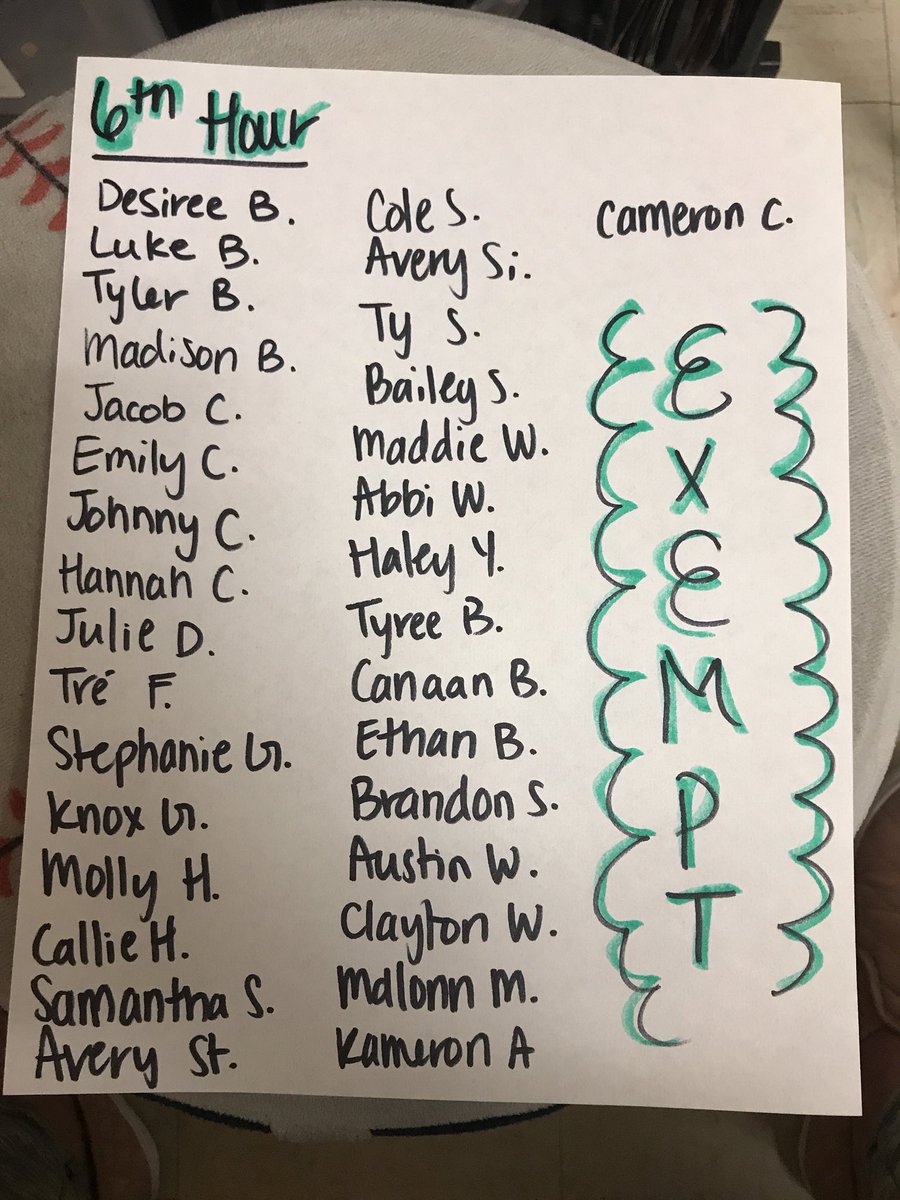 6th Hour
Desiree B.
Luke B.
Tyler B.
Madison B.
Jacob C.
Emily C.
Johnny C.
Hannah C.
Julie D.
Tré F.
Stephanie G.
Knox G.
Molly H.
Callie H.
Samantha S.
Avery St.
Cole S.
Avery Si.
Ty S.
Bailey S.
Maddie W.
Abbi W.
Haley Y.
Tyree B.
Canaan B.
Ethan B.
Brandon S.
Austin W.
Clayton W.
Mdlonn M.
Kameron A
Cameron C.
E
X
E
M
P
T